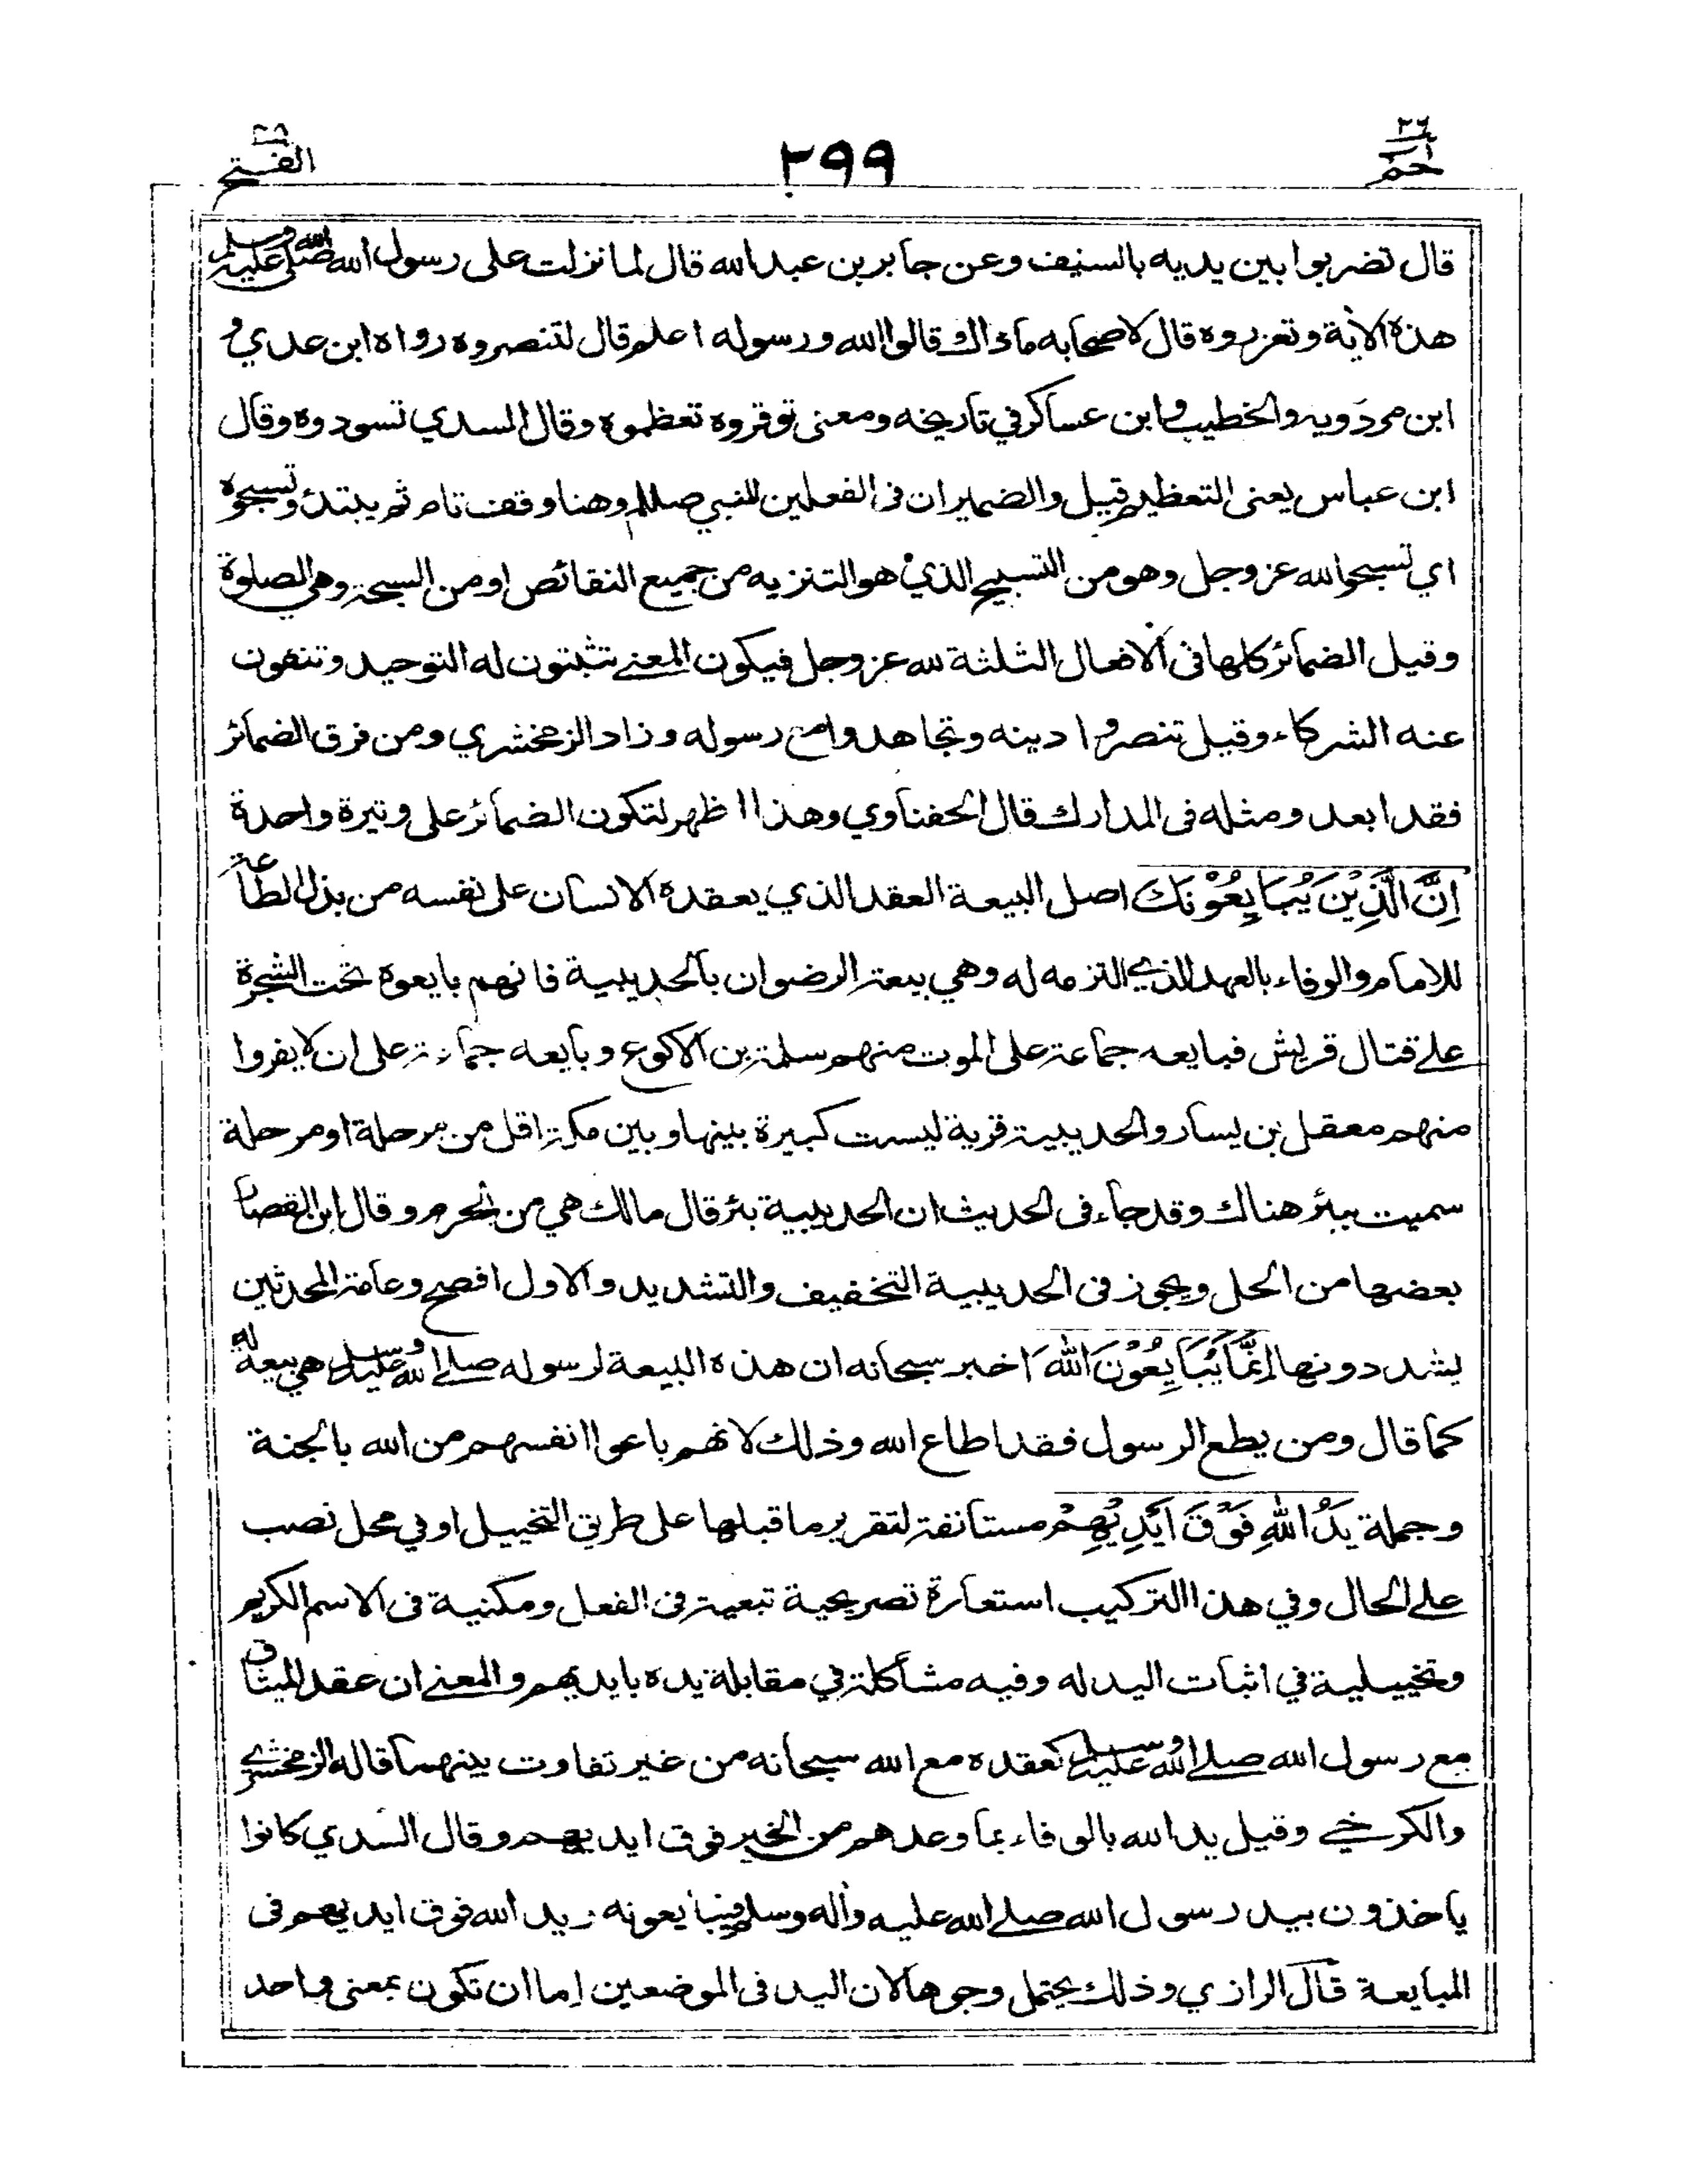 ٢٦
حم
٢٩٩
٤٨
الفتح
قال تضربوا بين يديه بالسيف وعن جابر بن عبد الله قال لما نزلت على رسول الله صلى الله عليه وسلم
هذه الاية وتعزروه قال لاصحابه ماذاك قالوا الله ورسوله اعلم قال لتنصروه رواه ابن عدي و
ابن مردويه والخطيب وابن عساكر في تاريخه ومعنى توقروه تعظموه وقال السدي تسودوه وقال
ابن عباس يعنى التعظيم قيل والضميران فى الفعلين للنبي صللم وهنا وقف تام ثم يبتدئ وتسبحوه
اي تسبحوا لله عز وجل وهو من التسبيح الذي هو التنزيه من جميع النقائص او من السبحة وهي الصلوة
وقيل الضمائر كلها فى الافعال الثلثة لله عز وجل فيكون المعنے تثبتون له التوحيد وتنفون
عنه الشركاء وقيل تنصروا دينه وتجاهدوا مع رسوله وزاد الزمخشري ومن فرق الضمائر
فقد ابعد ومثله فى المدارك قال الحفناوي وهذا اظهر لتكون الضمائر على وتيرة واحدة
اِنَّ الَّذِيْنَ يُبَايِعُوْنَكَ اصل البيعة العقد الذي يعقده الانسان على نفسه من بذل الطاعة
للامام والوفاء بالعهد الذي التزمه له وهي بيعة الرضوان بالحديبية فانهم بايعوه تحت الشجرة
علے قتال قريش فبايعه جماعة على الموت منهم سلمة بن الاكوع وبايعه جماعة على ان لا يفروا
منهم معقل بن يسار والحديبية قرية ليست كبيرة بينها وبين مكة اقل من مرحلة او مرحلة
سميت ببئر هناك وقد جاء فى الحديث ان الحديبية بئر قال مالك هي من الحرم وقال ابن القصار
بعضها من الحل ويجوز فى الحديبية التخفيف والتشديد والاول افصح وعامة المحدثين
يشددونها اِنَّمَا يُبَايِعُوْنَ اللهَ اخبر سبحانه ان هذه البيعة لرسوله صلے الله عليه وسلم هي بيعة له
كما قال ومن يطع الرسول فقد اطاع الله وذلك لانهم باعوا انفسهم من الله بالجنة
وجملة يَدُ اللهِ فَوْقَ اَيْدِيْهِمْ مستانفة لتقرير ما قبلها على طريق التخييل او في محل نصب
علے الحال وفي هذا التركيب استعارة تصريحية تبعية فى الفعل ومكنية فى الاسم الكريم
وتخييلية في اثبات اليد له وفيه مشاكلة في مقابلة يده بايديهم والمعنے ان عقد الميثاق
مع رسول الله صلے الله عليه وسلم كعقده مع الله سبحانه من غير تفاوت بينهما قاله الزمخشرے
والكرخے وقيل يد الله بالوفاء بما وعدهم من الخير فوق ايديهم وقال السدي كانوا
ياخذون بيد رسول الله صلے الله عليه وآله وسلم فيبايعونه ويد الله فوق ايديهم فى
المبايعة قال الرازي وذلك يحتمل وجوها لان اليد فى الموضعين اما ان تكون بمعنى واحد